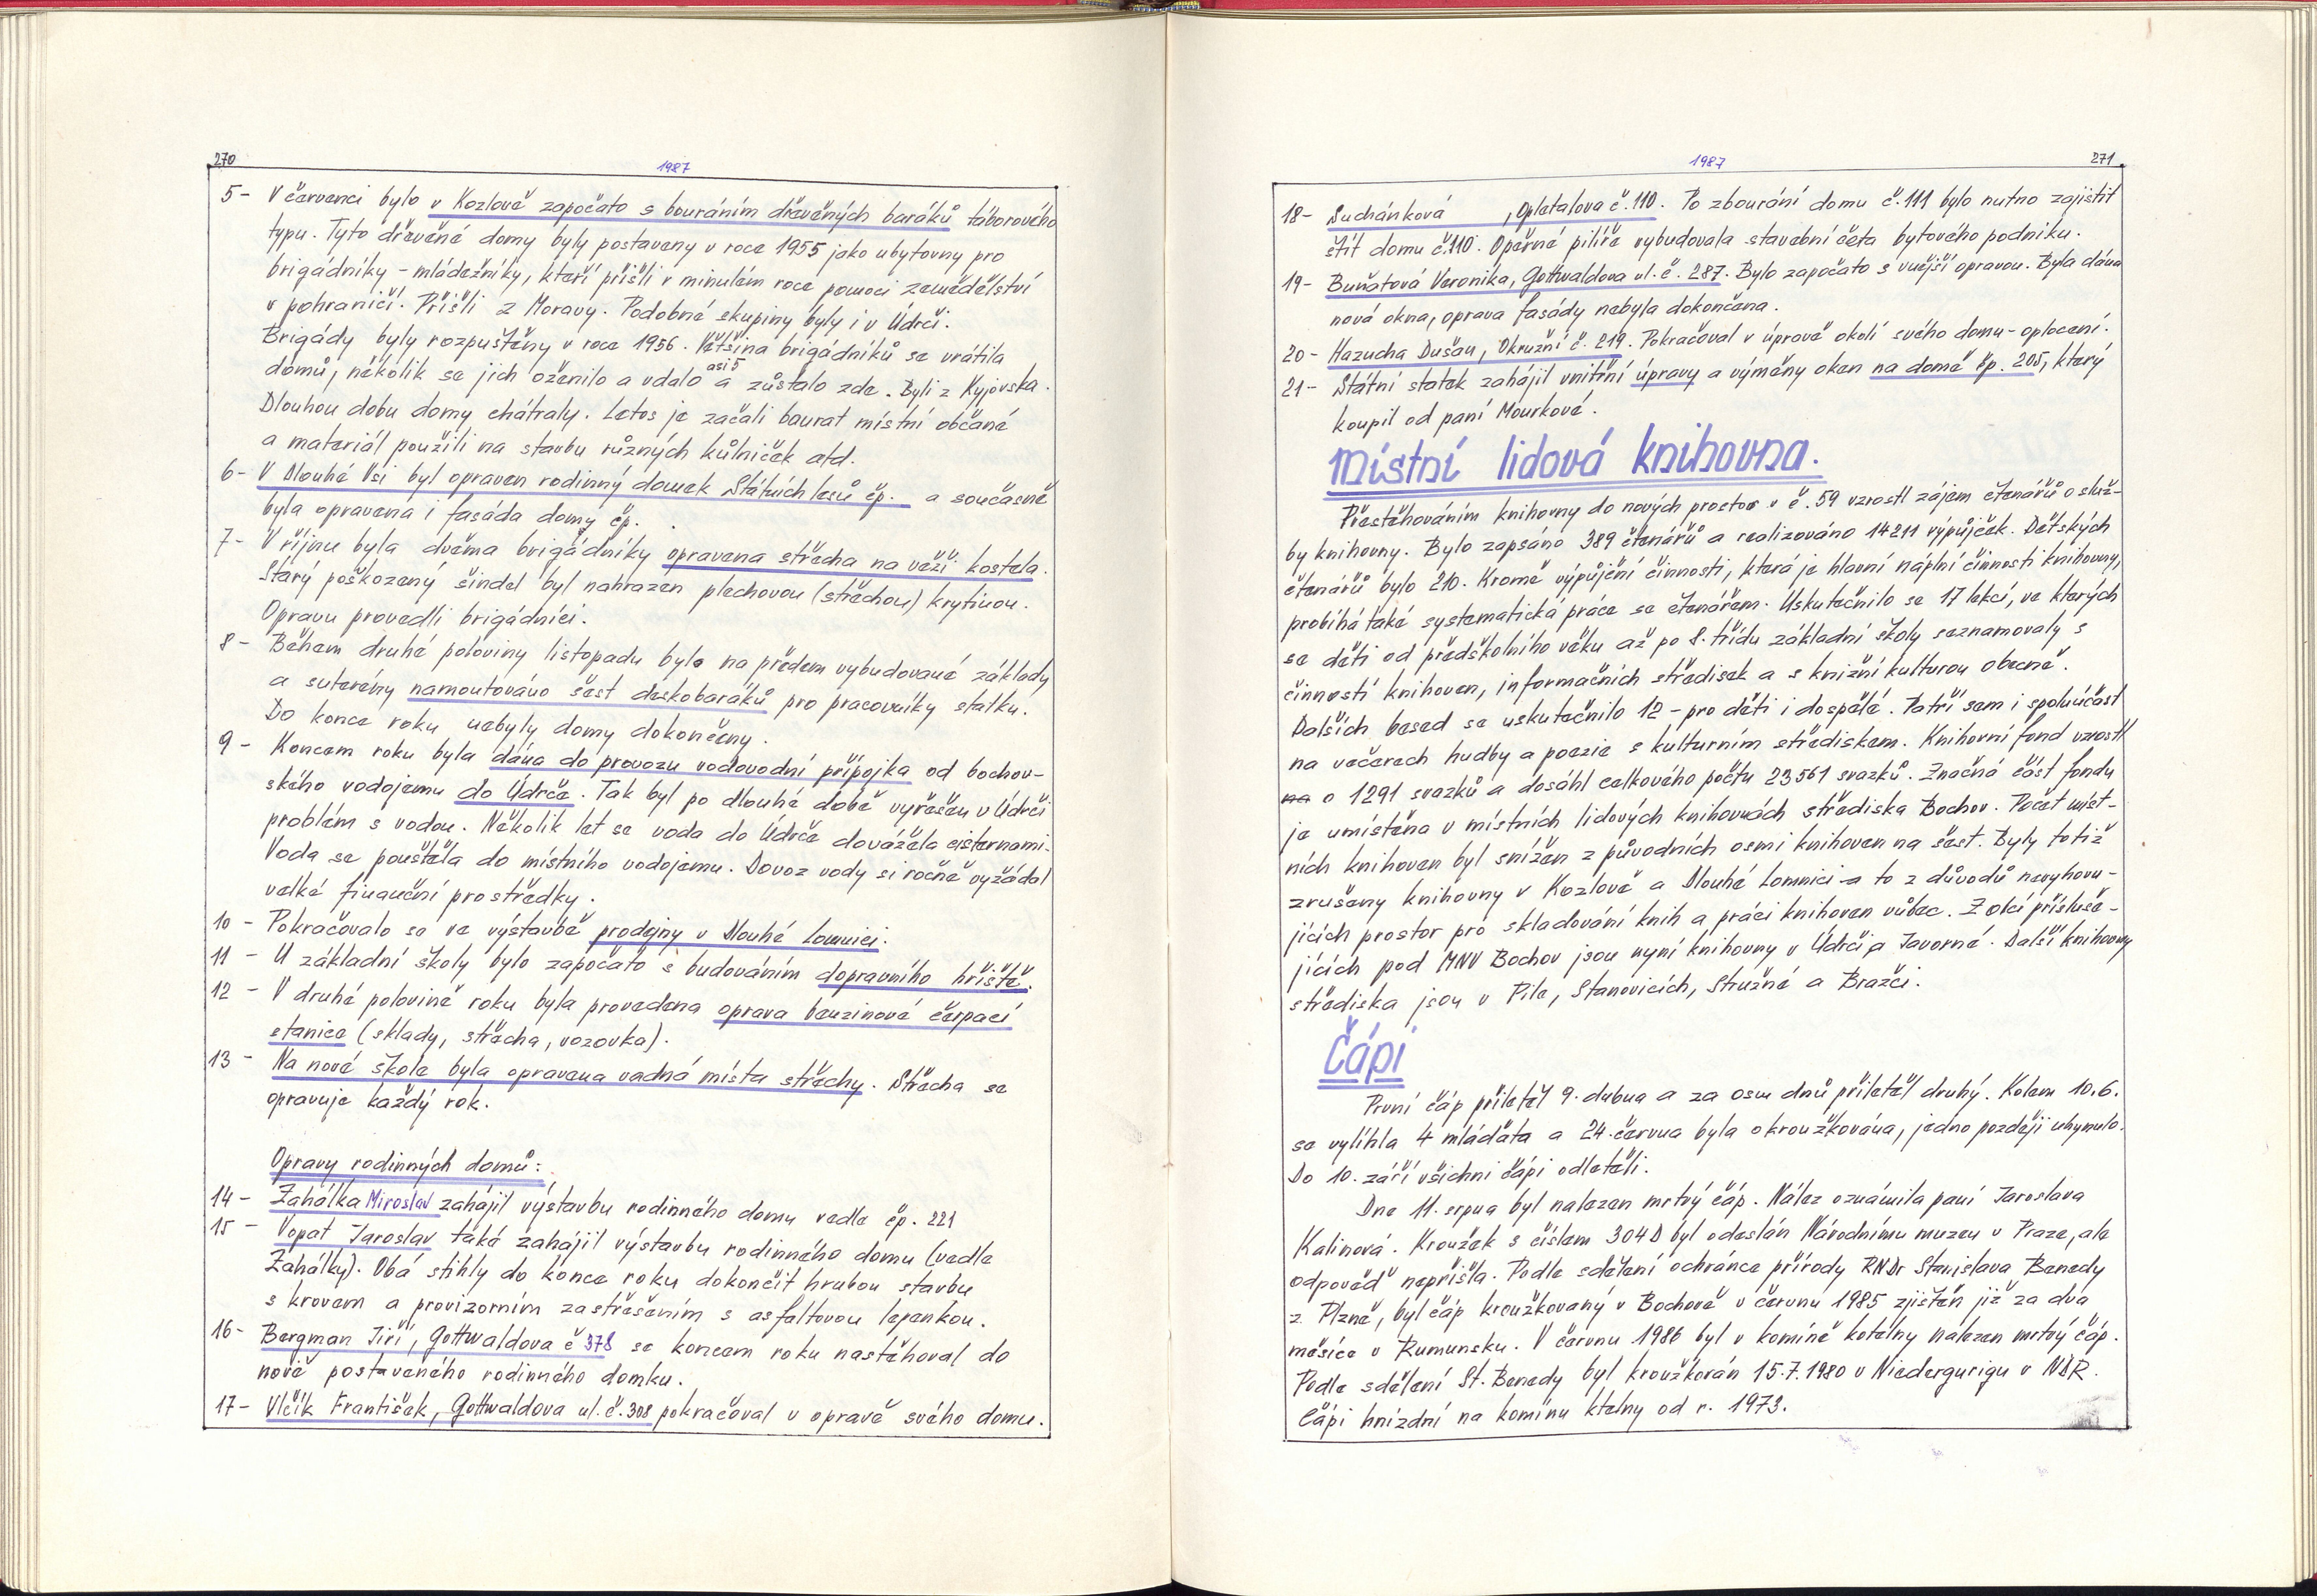 270
1987
5- V červenci bylo v Kozlově započato s bouráním dřevěných baráků táborového
typu. Tyto dřevěné domy byly postaveny v roce 1955 jako ubytovny pro
brigádníky - mládežníky, kteří přišli v minulém roce pomoci zemědělství
v pohraničí. Přišli z Moravy. Podobné skupiny byly i v Údrči.
Brigády byly rozpuštěny v roce 1956. Většina brigádníků se vrátila
domů, několik se jich oženilo a vdalo a asi 5 zůstalo zde. Byli z Kyjovska.
Dlouhou dobu domy chátraly. Letos je začali bourat místní občané
a materiál použili na stavbu různých kůlniček atd.
6- V Dlouhé Vsi byl opraven rodinný domek Státních lesů čp. a současně
byla opravena i fasáda domy čp. .
7- V říjnu byla dvěma brigádníky opravena střecha na věži kostela.
Starý poškozený šindel byl nahrazen plechovou (střechou) krytinou.
Opravu provedli brigádníci.
8- Během druhé poloviny listopadu bylo na předem vybudované základy
a suterény namontováno šest deskobaráků pro pracovníky statku.
Do konce roku nebyly domy dokončeny.
9- Koncem roku byla dána do provozu vodovodní přípojka od bochov-
ského vodojemu do Údrče. Tak byl po dlouhé době vyřešen v Údrči
problém s vodou. Několik let se voda do Údrče dovážela cisternami.
Voda se pouštěla do místního vodojemu. Dovoz vody si ročně vyžádal
velké finanční prostředky.
10- Pokračovalo se ve výstavbě prodejny v Dlouhé Lomnici.
11- U základní školy bylo započato s budováním dopravního hřiště.
12- V druhé polovině roku byla provedena oprava benzinové čerpací
stanice (sklady, střecha, vozovka).
13- Na nové škole byla opravena vadná místa střechy. Střecha se
opravuje každý rok.
Opravy rodinných domů:
14- Zahálka Miroslav zahájil výstavbu rodinného domu vedle čp. 221
15- Vopat Jaroslav také zahájil výstavbu rodinného domu (vedle
Zahálky). Obá stihly do konce roku dokončit hrubou stavbu
s krovem a provizorním zastřešením s asfaltovou lepenkou.
16- Bergman Jiří, Gottwaldova č 378 se koncem roku nastěhoval do
nově postaveného rodinného domku.
17- Vlčík František, Gottwaldova ul. č. 308 pokračoval v opravě svého domu.
1987
271
18- Suchánková , Opletalova č. 110. Po zbourání domu č. 111 bylo nutno zajistit
štít domu č. 110. Opěrné pilíře vybudovala stavební četa bytového podniku.
19- Buňatová Veronika, Gottwaldova ul. č. 287. Bylo započato s vnější opravou. Byla dána
nová okna, oprava fasády nebyla dokončena.
20- Hazucha Dušan, Okružní č. 219. Pokračoval v úpravě okolí svého domu - oplocení.
21- Státní statek zahájil vnitřní úpravy a výměny oken na domě čp. 205, který
koupil od paní Mourkové.
Místní lidová knihovna.
Přestěhováním knihovny do nových prostor v č. 59 vzrostl zájem čtenářů o služ-
by knihovny. Bylo zapsáno 389 čtenářů a realizováno 14211 výpůjček. Dětských
čtenářů bylo 210. Kromě výpůjční činnosti, která je hlavní náplní činnosti knihovny,
probíhá také systematická práce se čtenářem. Uskutečnilo se 17 lekcí, ve kterých
se děti od předškolního věku až po 8. třídu základní školy seznamovaly s
činností knihoven, informačních středisek a s knižní kulturou obecně.
Dalších besed se uskutečnilo 12 - pro děti i dospělé. Patří sem i spoluúčast
na večerech hudby a poezie s kulturním střediskem. Knihovní fond vzrostl
na o 1291 svazků a dosáhl celkového počtu 23561 svazků. Značná část fondu
je umístěna v místních lidových knihovnách střediska Bochov. Počet míst-
ních knihoven byl snížen z původních osmi knihoven na šest. Byly totiž
zrušeny knihovny v Kozlově a Dlouhé Lomnici a to z důvodů nevyhovu-
jících prostor pro skladování knih a práci knihoven vůbec. Z obcí přísluše-
jících pod MNV Bochov jsou nyní knihovny v Údrči a Javorné. Další knihovny
střediska jsou v Pile, Stanovicích, Stružné a Bražci.
Čápi
První čáp přiletěl 9. dubna a za osm dnů přiletěl druhý. Kolem 10.6.
se vylíhla 4 mláďata a 24. června byla okroužkována, jedno později uhynulo.
Do 10. září všichni čápi odletěli.
Dne 11. srpna byl nalezen mrtvý čáp. Nález oznámila paní Jaroslava
Kalinová. Kroužek s číslem 304D byl odeslán Národnímu muzeu v Praze, ale
odpověď nepřišla. Podle sdělení ochránce přírody RNDr Stanislava Benedy
z Plzně, byl čáp kroužkovaný v Bochově v červnu 1985 zjištěn již za dva
měsíce v Rumunsku. V červnu 1986 byl v komíně kotelny nalezen mrtvý čáp.
Podle sdělení St. Benedy byl kroužkován 15.7.1980 v Niedergurigu v NDR.
Čápi hnízdní na komínu ktelny od r. 1973.